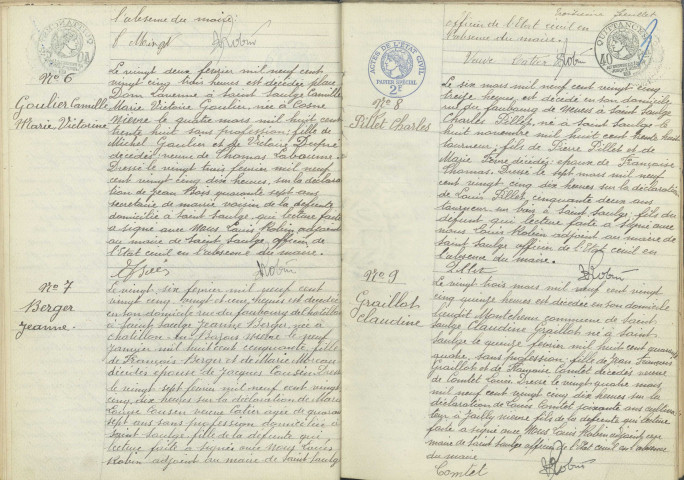 l'absence du maire
l'Meingt LRobin
No 6
Gaulier Camille
Marie Victorine
Le vingt deux février mil neuf cent
vingt cinq trois heures est décédée place
Dom Laverne à Saint Saulge Camille
Marie Victoire Gaulier, née à Cosne
Nièvre le quatre mars mil huit cent
trente huit sans profession; fille de
Michel Gaulier et de Victoire Dupré
décédés; veuve de Thomas
Dressé le vingt trois février mil neuf
cent vingt cinq dix heures, sur la déclara
tion de Jean Bois quarante sept ans
secrétaire de mairie voisin de la défunte
domicilié à Saint Saulge, qui lecture faite
a signé avec Nous Louis Robin adjoint
au maire de Saint Saulge officier de
l'Etat civil en l'absence du maire.
LRobin
No 7
Berger
Jeanne.
Le vingt six février mil neuf cent
vingt cinq vingt et une heures est décédée
en son domicile rue du faubourg du chatillon
à Saint Saulge Jeanne Berger, née à
Chatillon en Bazois Nièvre le neuf
janvier mil huit cent cinquante fille
de François Berger et de Marie
décédés épouse de Jacques Cousin Dressé
le vingt sept février mil neuf cent vingt
cinq dix heures sur la déclaration de Marie
Louise Cousin veuve Catier agée de quarante
sept ans sans profession domiciliée à
Saint Saulge fille de la défunte qui
lecture faite a signé avec Nous Louis
Robin adjoint au maire de Saint Saulge
feuillet
officier de l'Etat civil en
l'absence du maire.
Veuve Catier LRobin
ACTES DE L'ÉTAT CIVIL
PAPIER SPÉCIAL
2F
QUITTANCES
40
No 8
Pillet Charles
Le six mars mil neuf cent vingt cinq
treize heures, est décédé en son domicile
rue du faubourg de Meuse à Saint Saulge
Charles Pillet, né à Saint Saulge le
huit novembre mil huit cent trente huit
tourneur; fils de Pierre Pillet et de
Marie décédés; époux de Françoise
Thomas. Dressé le sept mars mil neuf
cent vingt cinq dix heures sur la déclaration
de Louis Pillet, cinquante deux ans
tourneur en bois à Saint Saulge fils du
défunt qui lecture faite a signé avec
Nous Louis Robin adjoint au maire de
Saint Saulge officier de l'Etat civil en
l'absence du maire.
Pillet LRobin
No 9
Graillot
Claudine
Le vingt trois mars mil neuf cent vingt
cinq quinze heures est décédée en son domicile
lieudit Montcheau commune de Saint
Saulge Claudine Graillot né à Saint
Saulge le quinze février mil huit cent quarante
quatre, sans profession; fille de Jean François
Graillot et de Françoise Comtet décédés veuve
de Comtet Louis. Dressé le vingt quatre mars
mil neuf cent vingt cinq dix heures sur la
déclaration de Louis Comtet soixante ans cultiva
teur à Jailly Nièvre fils de la défunte qui lecture
faite a signé avec Nous Louis Robin adjoint au
maire de Saint Saulge officier de l'Etat civil en l'absence
du maire
Comtet LRobin